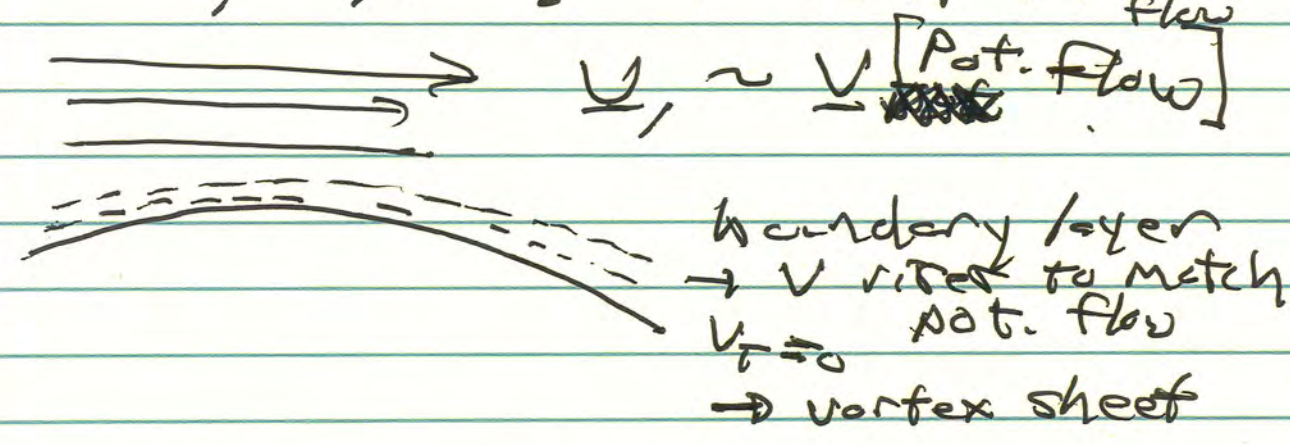 flow
U, ~ V [Pot. Flow]
boundary layer
→ V rises to match
pot. flow
V_T = 0
→ vortex sheet